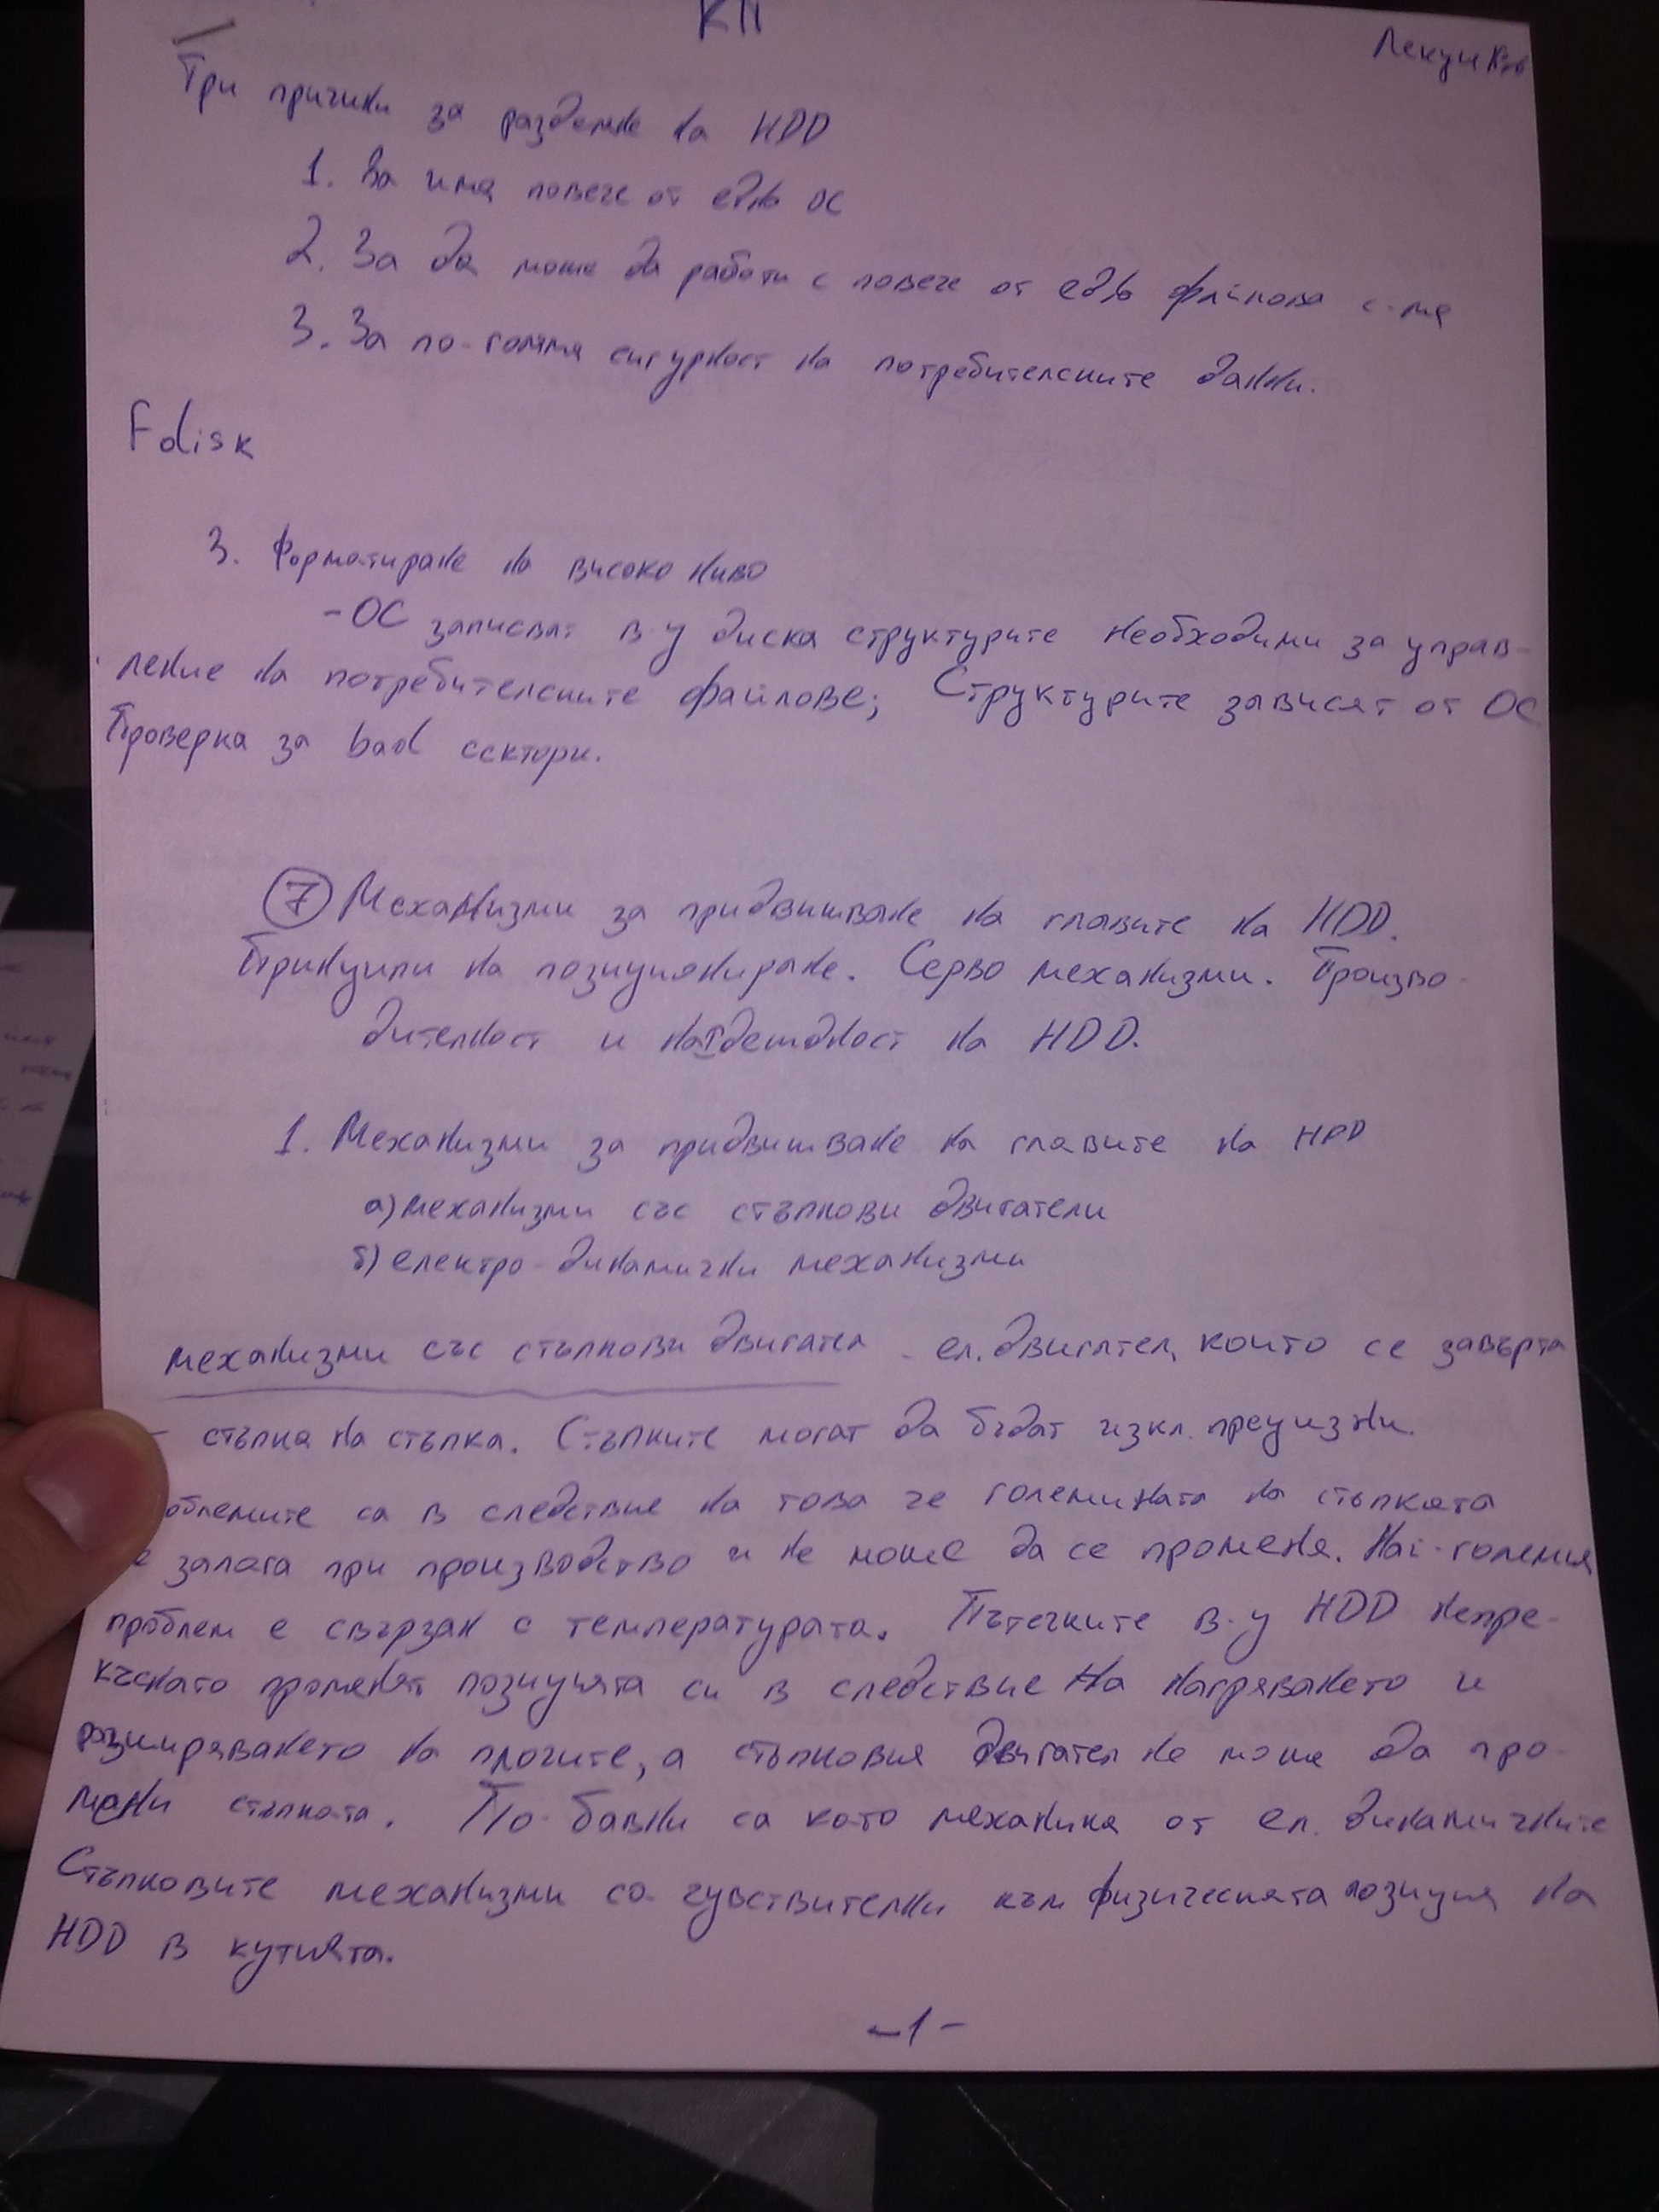 КП
Лекции
Три причини за разделяне на HDD
1. За има повече от една ОС
2. За да може да работи с повече от една файлова с-ма
3. За по-голяма сигурност на потребителските данни.
Fdisk
3. Форматиране на високо ниво
- ОС записват в-у диска структурите необходими за управ-
ление на потребителските файлове; Структурите зависят от ОС
Проверка за bad сектори.
7 Механизми за придвижване на главите на HDD.
Принципи на позициониране. Серво механизми. Произво-
дителност и надеждност на HDD.
1. Механизми за придвижване на главите на HDD
а) механизми със стъпкови двигатели
б) електро-динамични механизми
механизми със стъпкови двигател - ел. двигател, които се завърта
- стъпка на стъпка. Стъпките могат да бъдат изкл. прецизни.
облемите са в следствие на това че големината на стъпката
е залага при производство и не може да се променя. Най-големия
проблем е свързан с температурата. Пътечките в-у HDD непре-
къснато променят позицията си в следствие на нагряването и
разширяването на плочите, а стъпковия двигател не може да про-
мени стъпката. По-бавни са като механика от ел. динамичните
Стъпковите механизми са чувствителни към физическата позиция на
HDD в кутията.
-1-